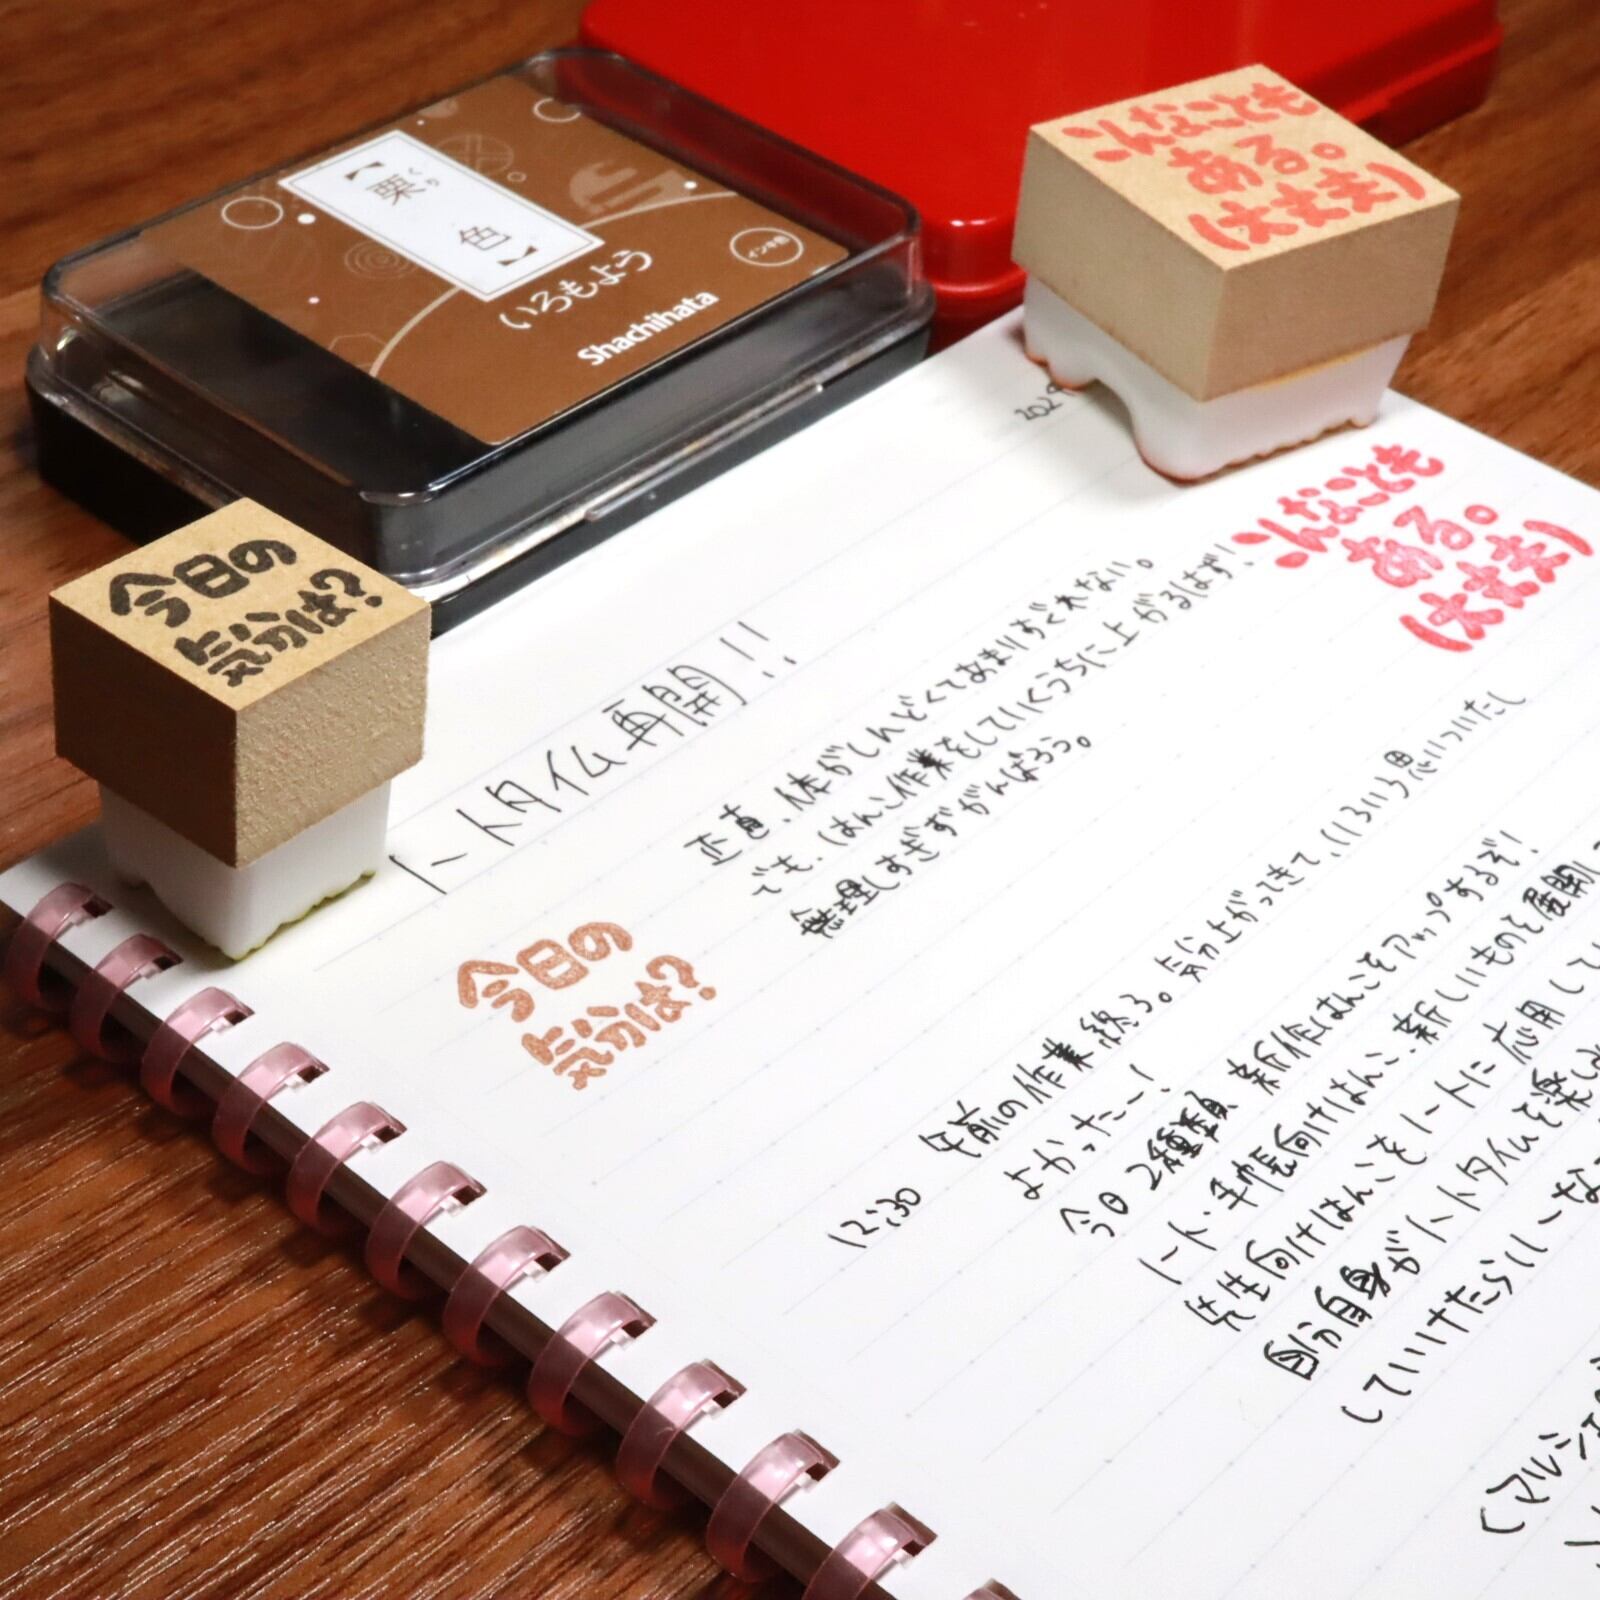 【栗色】
くり
いろもよう
Shachihata
インキ色
こんなことも
ある。
(大丈夫)
今日の
気分は?
202
こんなことも
ある。
(大丈夫)
ノートタイム再開!!
正直、体がしんどくてあまりすぐれない。
でも、はんこ作業をしていくうちに上がるはず!
無理しすぎずがんばろう。
今日の
気分は?
12:30
午前の作業終了。気分上がってきて、いろいろ思いついたし
よかったー!
今日2種類、新作はんこをアップするぞ!
ノート・手帳向けはんこ、新しいもので展開し
先生向けはんこをノートに応用して
自分自身がノートタイムを楽し
していけたらいーな
(マルシェ